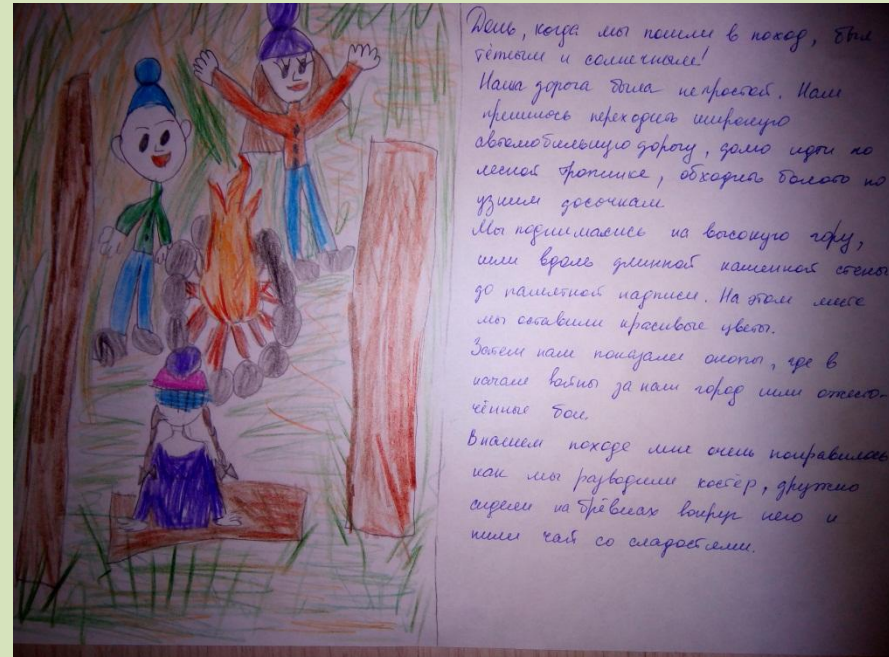 День, когда мы пошли в поход, был
тёплым и солнечным!
Наша дорога была непростой. Нам
пришлось переходить широкую
автомобильную дорогу, долго идти по
лесной тропинке, обходить болото по
узким досочкам
Мы поднимались на высокую гору,
шли вдоль длинной каменной стены
до памятной надписи. На этом месте
мы оставили красивые цветы.
Затем нам показали окопы, где в
начале войны за наш город шли ожесто-
чённые бои.
В нашем походе мне очень понравилось
как мы разводили костёр, дружно
сидели на брёвнах вокруг него и
пили чай со сладостями.